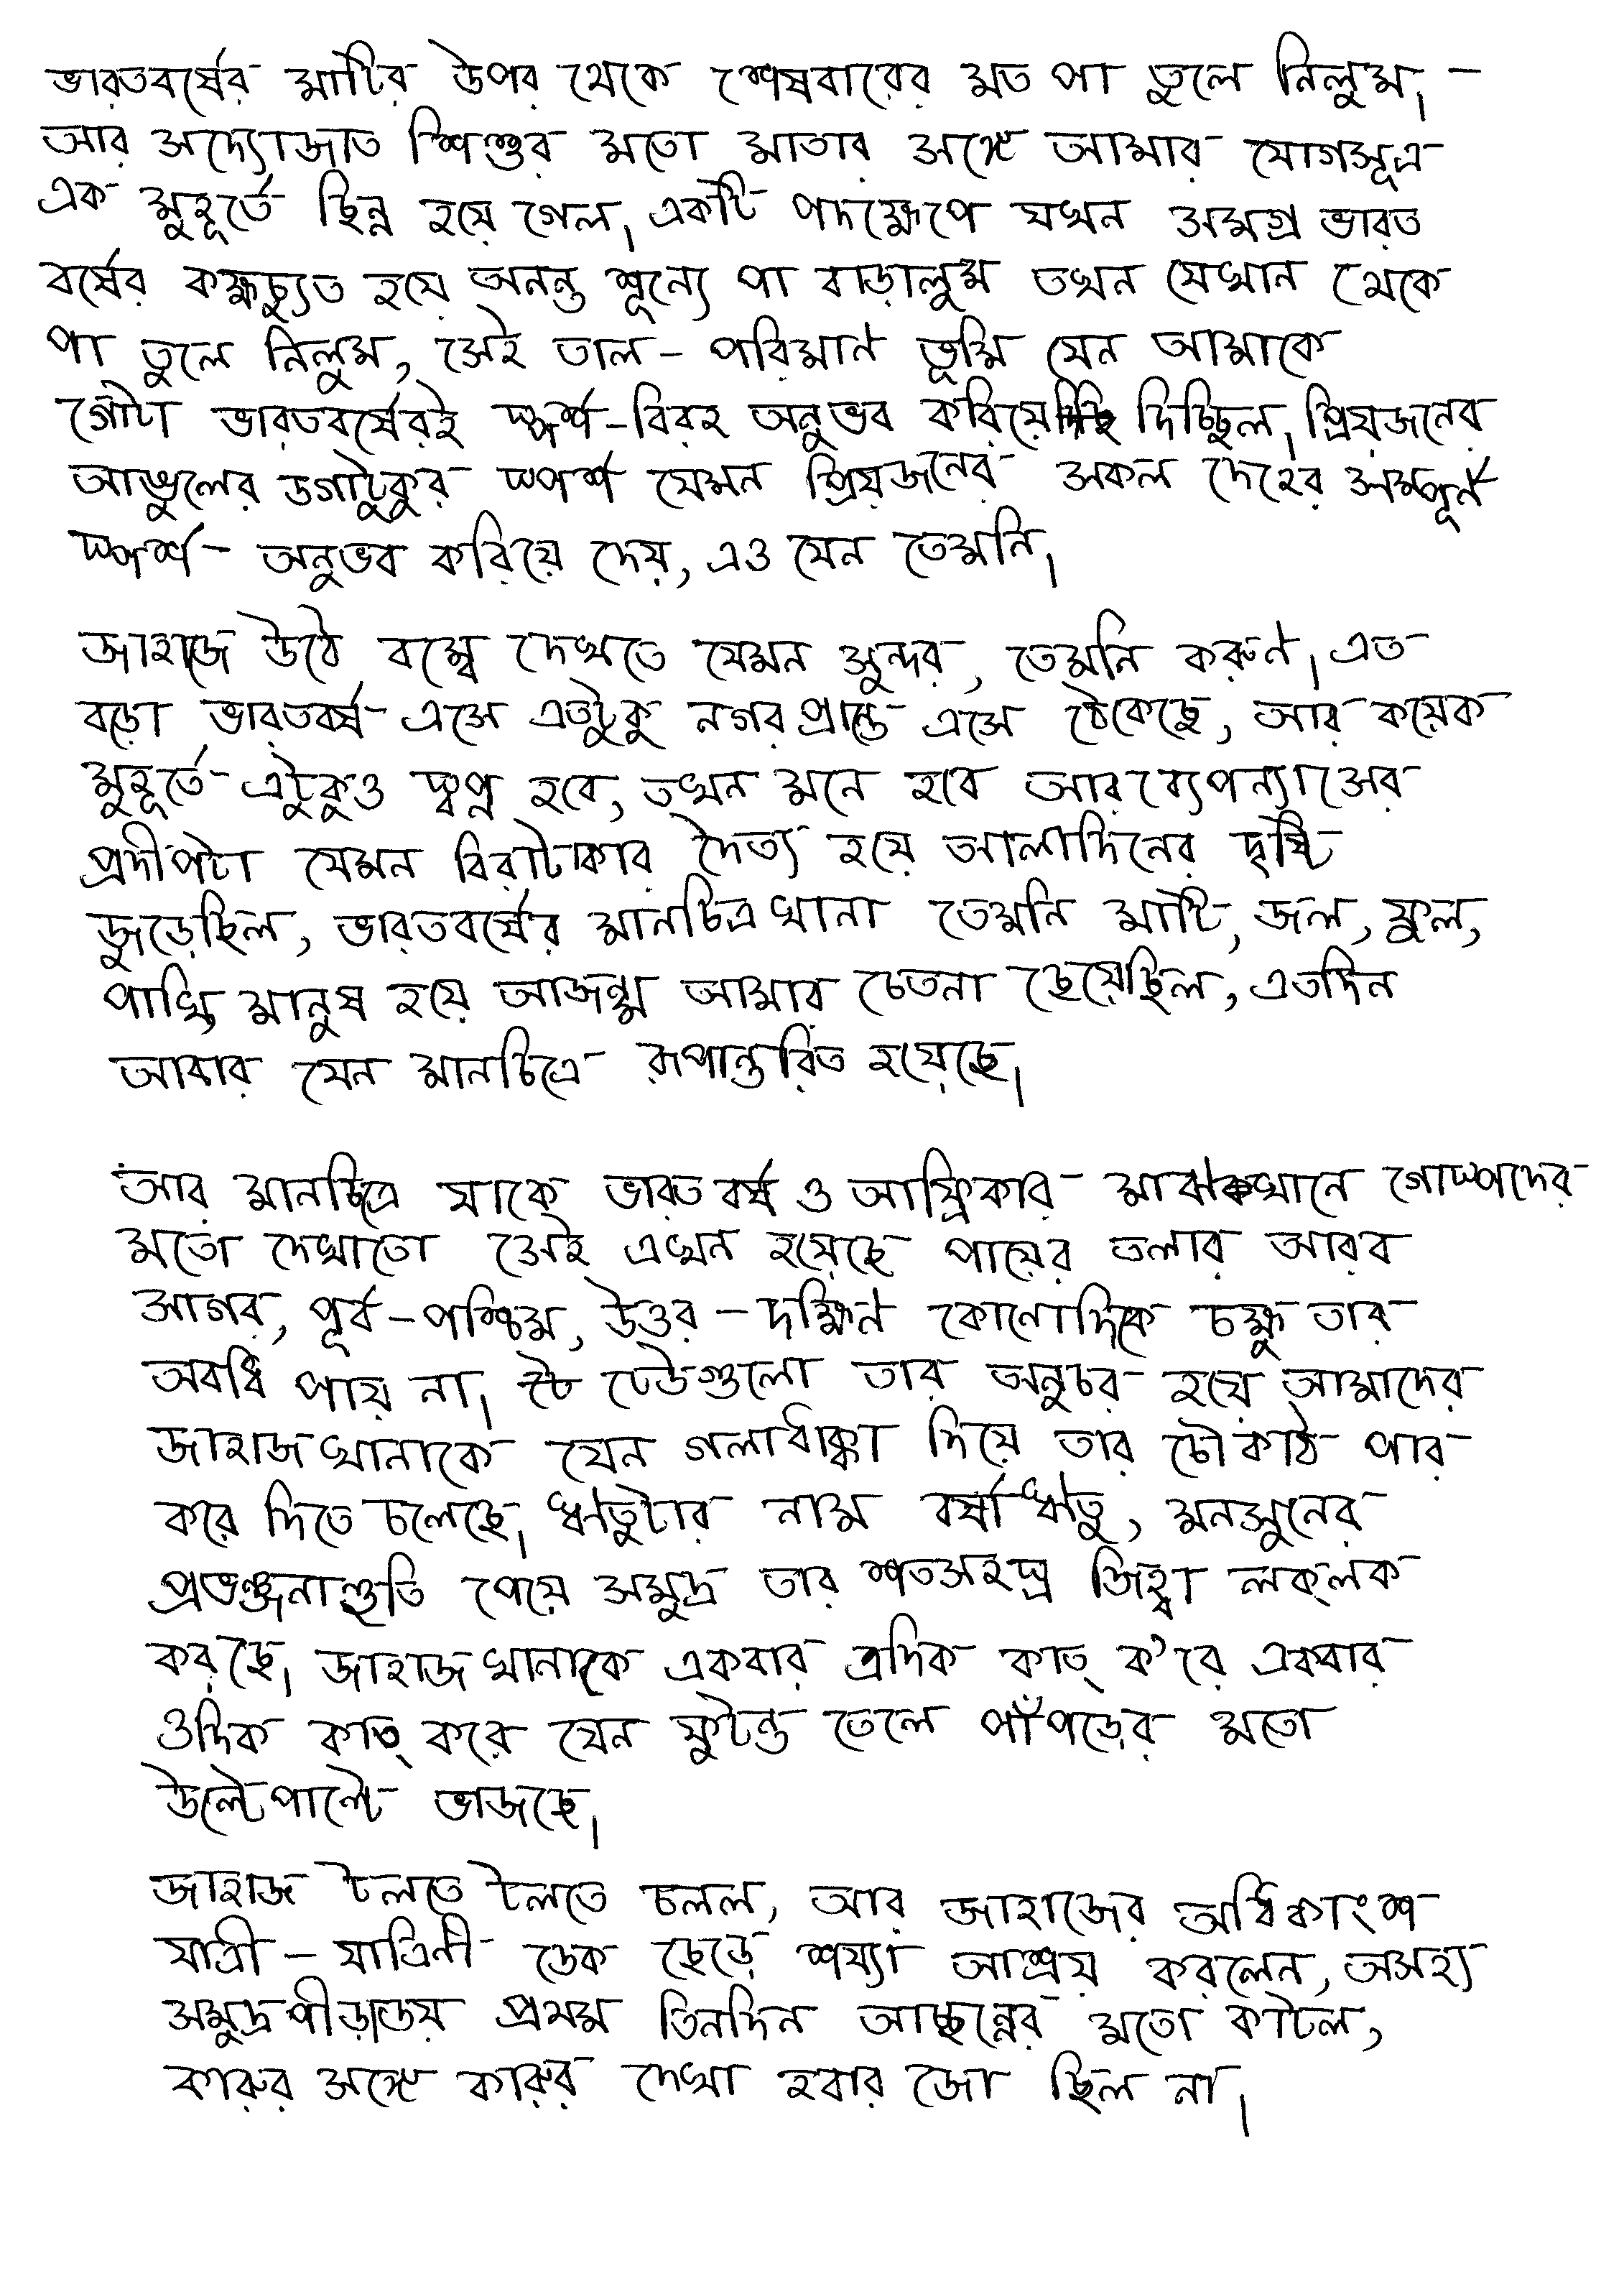 ভারতবর্ষের মাটির উপর থেকে শেষবারের মত পা তুলে নিলুম। -
আর সদ্যোজাত শিশুর মতো মাতার সঙ্গে আমার যোগসূত্র
এক মুহূর্তে ছিন্ন হয়ে গেল। একটি পদক্ষেপে যখন সমগ্র ভারত
বর্ষের কক্ষচ্যুত হয়ে অনন্ত শূন্যে পা বাড়ালুম তখন যেখান থেকে
পা তুলে নিলুম, সেই তাল-পরিমাণ ভূমি যেন আমাকে
গোটা ভারতবর্ষেরই স্পর্শ-বিরহ অনুভব করিয়ে দিচ্ছিল। প্রিয়জনের
আঙুলের ডগাটুকুর স্পর্শ যেমন প্রিয়জনের সকল দেহের সম্পূর্ণ
স্পর্শ- অনুভব করিয়ে দেয়, এও যেন তেমনি।
জাহাজে উঠে বম্বে দেখতে যেমন সুন্দর, তেমনি করুণ। এত
বড়ো ভারতবর্ষ এসে এতটুকু নগরপ্রান্তে এসে ঠেকেছে, আর কয়েক
মুহূর্তে এটুকুও স্বপ্ন হবে, তখন মনে হবে আরব্যেপন্যাসের
প্রদীপটা যেমন বিরাটাকার দৈত্য হয়ে আলাদিনের দৃষ্টি
জুড়েছিল, ভারতবর্ষের মানচিত্রখানা তেমনি মাটি, জল, ফুল,
পাখি, মানুষ হয়ে আজন্ম আমার চেতনা ছেয়েছিল, এতদিন
আবার যেন মানচিত্রে রূপান্তরিত হয়েছে।
আর মানচিত্রে যাকে ভারতবর্ষ ও আফ্রিকার মাঝখানে গোস্পদের
মতো দেখাতো সেই এখন হয়েছে পায়ের তলার আরব
সাগর, পূর্ব-পশ্চিম, উত্তর-দক্ষিণ কোনোদিকে চক্ষু তার
অবধি পায় না। ঢেউগুলো তার অনুচর হয়ে আমাদের
জাহাজখানাকে যেন গলাধাক্কা দিয়ে তার চৌকাঠ পার
করে দিতে চলেছে। ঋতুটার নাম বর্ষাঋতু, মনসুনের
প্রভঞ্জনাহুতি পেয়ে সমুদ্র তার শতসহস্র জিহ্বা লক্‌লক
করছে। জাহাজখানাকে একবার এদিক কাত্ ক'রে একবার
ওদিক কাত্ করে যেন ফুটন্ত তেলে পাঁপড়ের মতো
উল্টেপাল্টে ভাজছে।
জাহাজ টলতে টলতে চলল, আর জাহাজের অধিকাংশ
যাত্রী-যাত্রিনী ডেক ছেড়ে শয্যা আশ্রয় করলেন, অসহ্য
সমুদ্রপীড়ায় প্রথম তিনদিন আচ্ছন্নের মতো কাটল,
কারুর সঙ্গে কারুর দেখা হবার জো ছিল না।